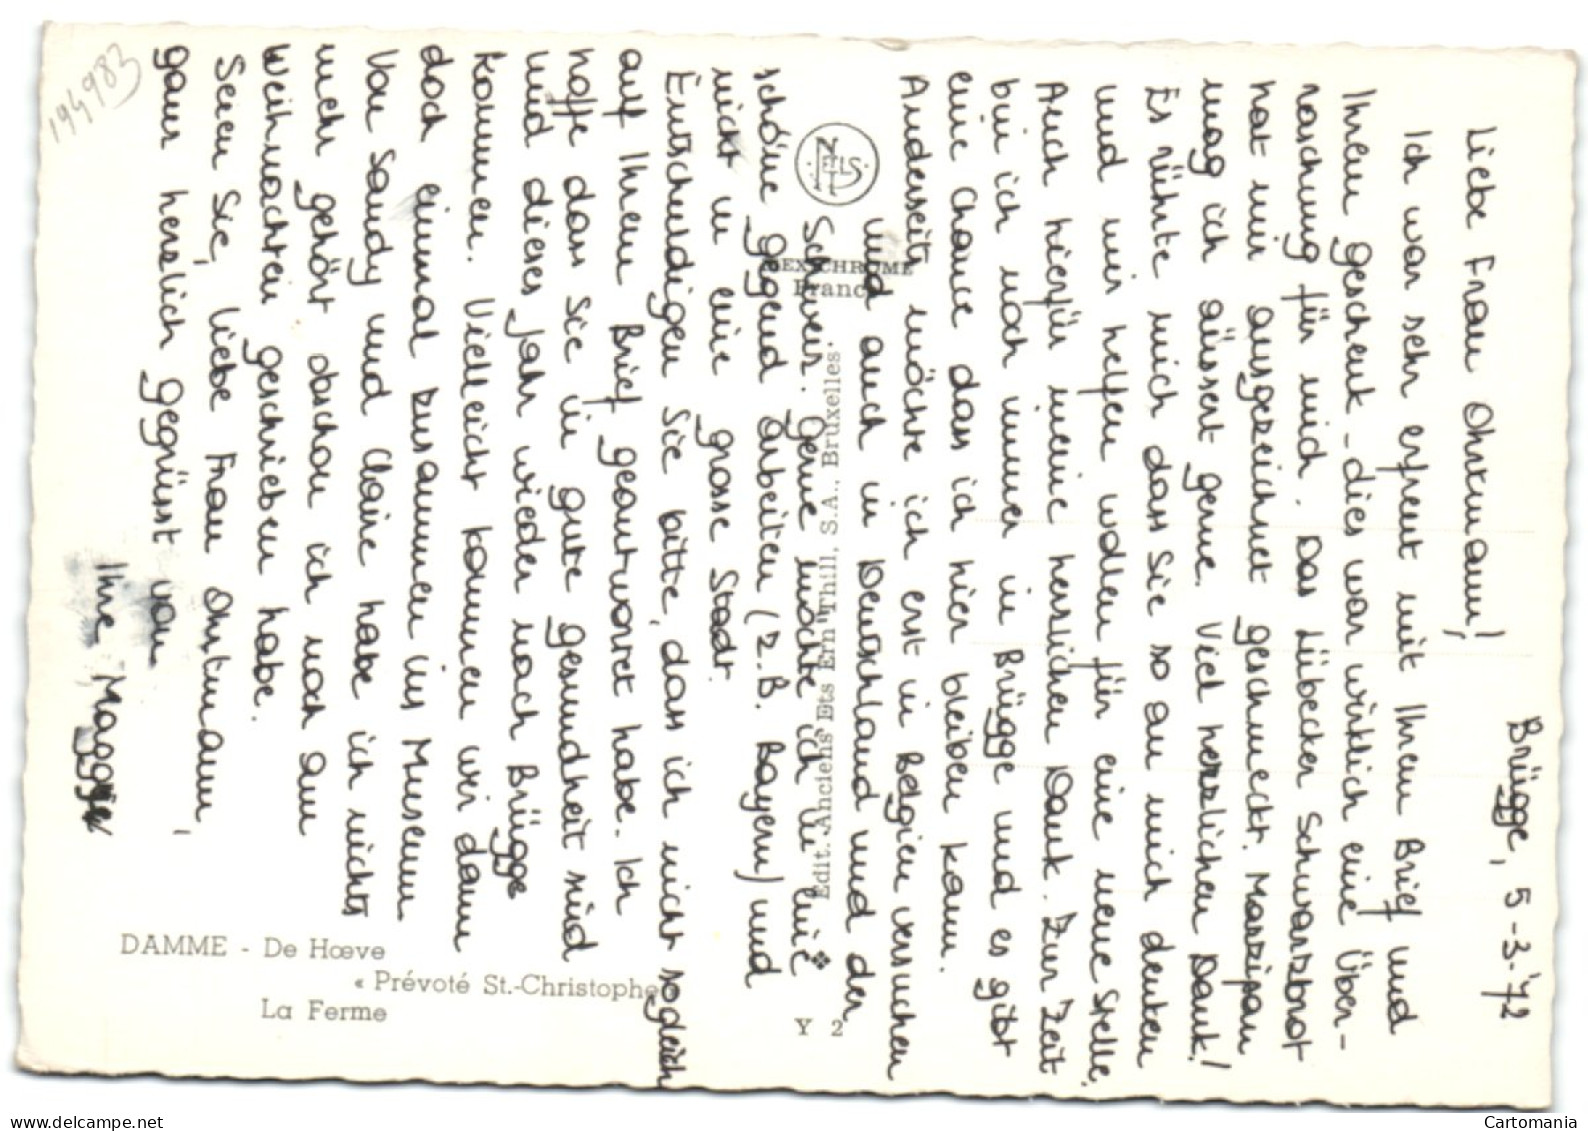 Brügge, 5-3-'72
Liebe Frau Ohrtmann!
Ich war sehr erfreut mit Ihrem Brief und
Ihrem Geschenk - dies war wirklich eine Über-
raschung für mich. Das Lübecker Schwarzbrot
hat mir ausgezeichnet geschmeckt. Marzipan
mag ich äussert gerne. Viel herzlichen Dank!
Es rührte mich dass Sie so an mich denken
und mir helfen wollen für eine neue Stelle.
Auch hierfür meine herzlichen Dank. Zur Zeit
bin ich noch immer in Brügge und es gibt
eine Chance dass ich hier bleiben kann.
Anderseits möchte ich erst in Belgien versuchen
und auch in Deutschland und der
Schweiz. Gerne möchte ich in eine
schöne Gegend arbeiten (z.B. Bayern) und
nicht in eine grosse Stadt.
Entschuldigen Sie bitte, dass ich nicht sogleich
auf Ihrem Brief geantworet habe. Ich
hoffe dass Sie in gute Gesundheit sind
und dieses Jahr wieder nach Brügge
kommen. Vielleicht kommen wir dann
doch einmal zusammen ins Museum
Von Sandy und Claire habe ich nichts
mehr gehört obschon ich noch am
Weihnachten geschrieben habe.
Seien Sie, liebe Frau Ohrtmann,
ganz herzlich gegrüsst von,
Ihre Maggy
194983
NELS
ETS
MEXICHROME
France
Edit. Anciens Ets Ern Thill, S.A., Bruxelles.
DAMME - De Hœve
« Prévoté St.-Christophe »
La Ferme
Y 2
Cartomania
www.delcampe.net